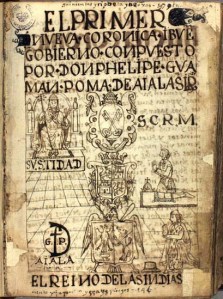 EL PRIMER
NVEVA CORONICA I BVE
GOBIERNO CONPVESTO
POR DON PHELIPE GVA
MAN POMA DE AIALA S
S.C.R.M.
SV S.TIDAD
G P
AIALA
EL REINO DE LAS INDIAS